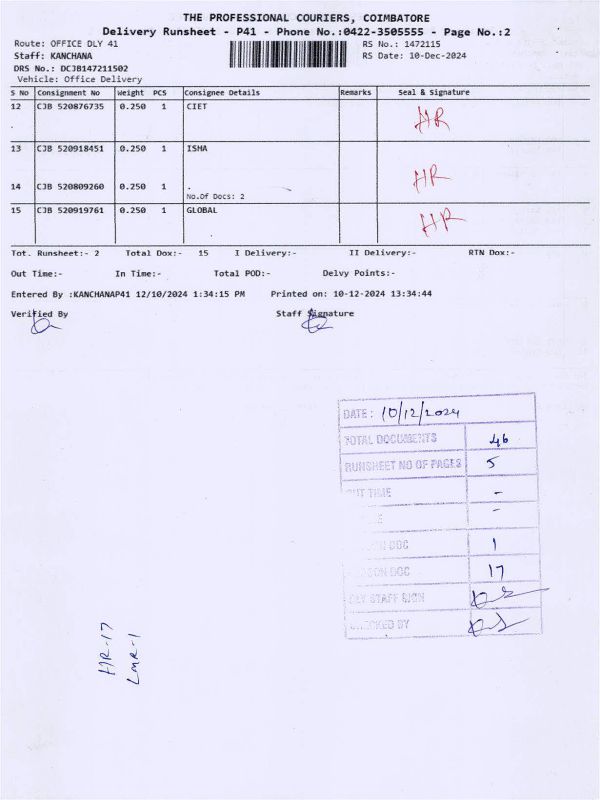 THE PROFESSIONAL COURIERS, COIMBATORE
Delivery Runsheet - P41 - Phone No.:0422-3505555 - Page No.:2
Route: OFFICE DLY 41
RS No.: 1472115
Staff: KANCHANA
RS Date: 10-Dec-2024
DRS No.: DCJB147211502
Vehicle: Office Delivery
S No Consignment No Weight PCS Consignee Details Remarks Seal & Signature
12 CJB 520876735 0.250 1 CIET HR
13 CJB 520918451 0.250 1 ISHA
14 CJB 520809260 0.250 1 HR
No.Of Docs: 2
15 CJB 520919761 0.250 1 GLOBAL HR
Tot. Runsheet:- 2 Total Dox:- 15 I Delivery:- II Delivery:- RTN Dox:-
Out Time:- In Time:- Total POD:- Delvy Points:-
Entered By :KANCHANAP41 12/10/2024 1:34:15 PM Printed on: 10-12-2024 13:34:44
Verified By Staff Signature
DATE: 10/12/2024
TOTAL DOCUMENTS 46
RUNSHEET NO OF PAGES 5
OUT TIME -
-
DOC 1
DOC 17
DLY STAFF SIGN
CHECKED BY
HR-17
LMR-1